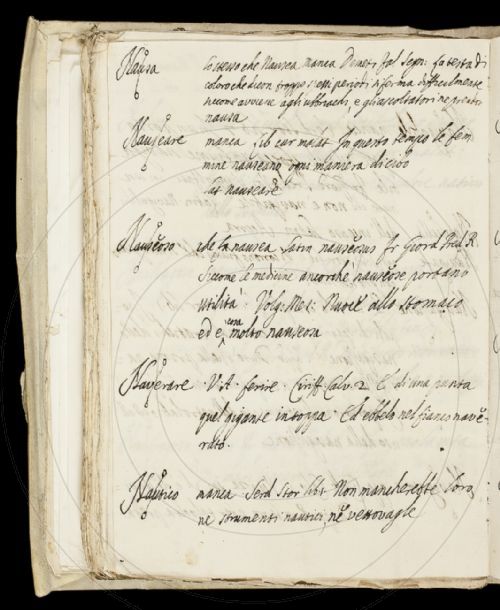 Nausa lo stesso che Nausea manca Demetr. Fal. Segn: La testa di
coloro che dicon troppo spessi periodi si ferma difficilmente
siccome avviene agli ubbriachi, e gli ascoltatori ne prendon
nausa
Nauseare manca lib cur malat In questo tempo le fem
mine nauseano ogni maniera di cibo
Lat nauseare
Nauseoso che fa nausea Latin nauseosus Fr Giord Pred R.
Siccome le medicine ancorche nauseose portano
utilità. Volg: Mes: Nuoce allo stomaco
ed e cosa molto nauseosa
Naverare V.A ferire. Ciriff Calv. 2 E di una punta
quel gigante intoppa Ed ebbelo nel fianco nave-
rato.
Nautico manca Serd Stor lib: Non mancherebbe loro
ne strumenti nautici, ne vettovaglie